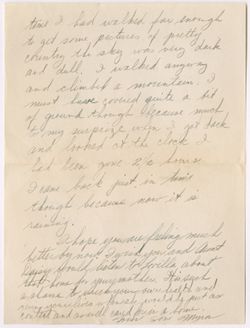 time I had walked far enough
to get some pictures of pretty
country the sky was very dark
and dull. I walked anyway
and climbed a mountain. I
must have covered quite a bit
of ground though because much
to my surprise when I got back
and looked at the clock I
had been gone 2½ hours.
I came back just in time
though because now it is
raining.
I hope you are feeling much
better by now
about
that home for your mother. It is such
a shame to
your own health and
your own life
would be put an